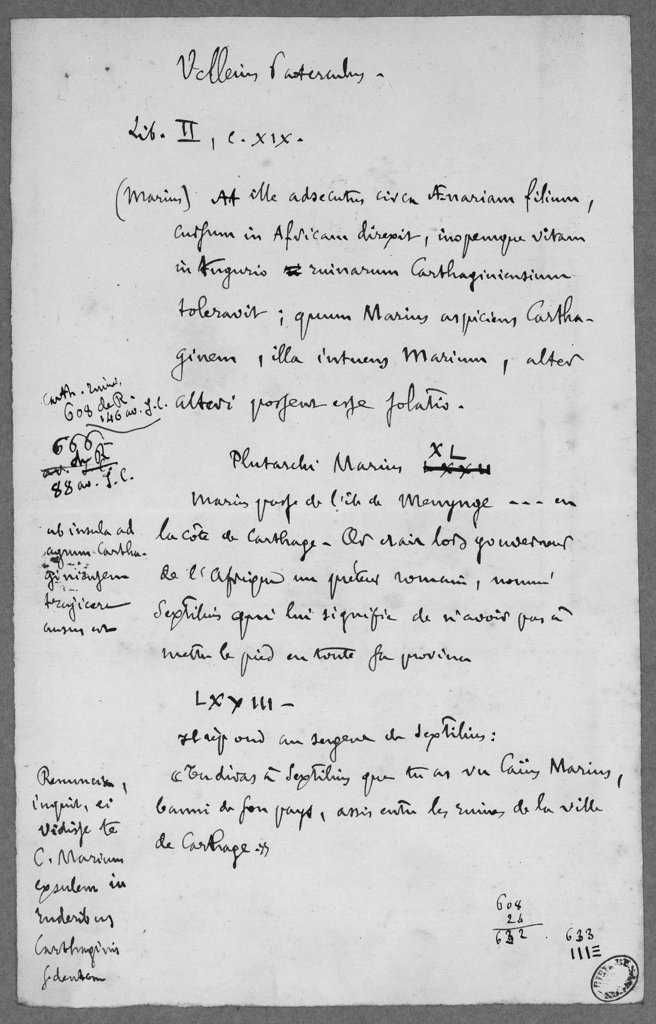 Velleius Paterculus.
Lib. II, c. XIX.
(Marius) At ille adsecutus circa Ænariam filium,
cursum in Africam direxit, inopemque vitam
in tugurio ruinarum Carthaginiensium
toleravit ; quum Marius aspiciens Cartha-
ginem, illa intuens Marium, alter
alteri possent esse solatio.
Carth. ruin.
608 de R.
146 av. J.C.
666
88 av. J.C.
Plutarchi Marius XL
LXXII
Marius passe de l'île de Menynge --- en
la côte de Carthage. Or était lors gouverneur
de l'Afrique un préteur romain, nommé
Sextilius qui lui signifie de n'avoir pas à
mettre le pied en toute sa province
ab insula ad
agrum Cartha-
giniensem
trajicere
ausus est
LXXIII -
Il répond au sergent de Sextilius :
« Tu diras à Sextilius que tu as vu Caïus Marius,
banni de son pays, assis entre les ruines de la ville
de Carthage. »
Renuncia,
inquit, ei
vidisse te
C. Marium
exsulem in
ruderibus
Carthaginis
sedentem
608
24
632
633
III